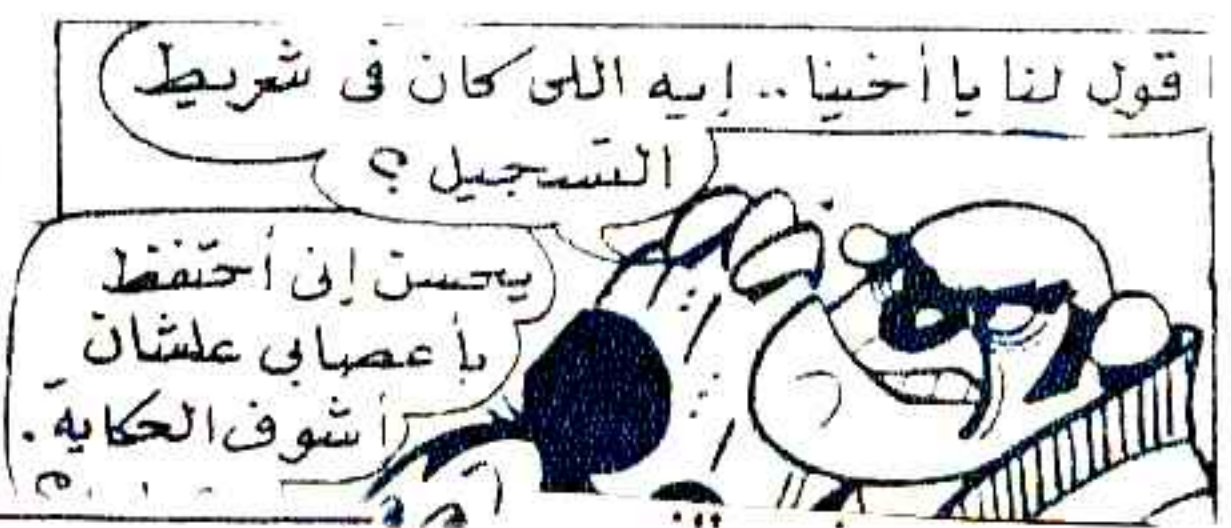 قول لنا يا أخينا.. إيه اللى كان فى شريط
التسجيل؟
يحسن إنى أحتفظ
بأعصابى علشان
أشوف الحكاية.